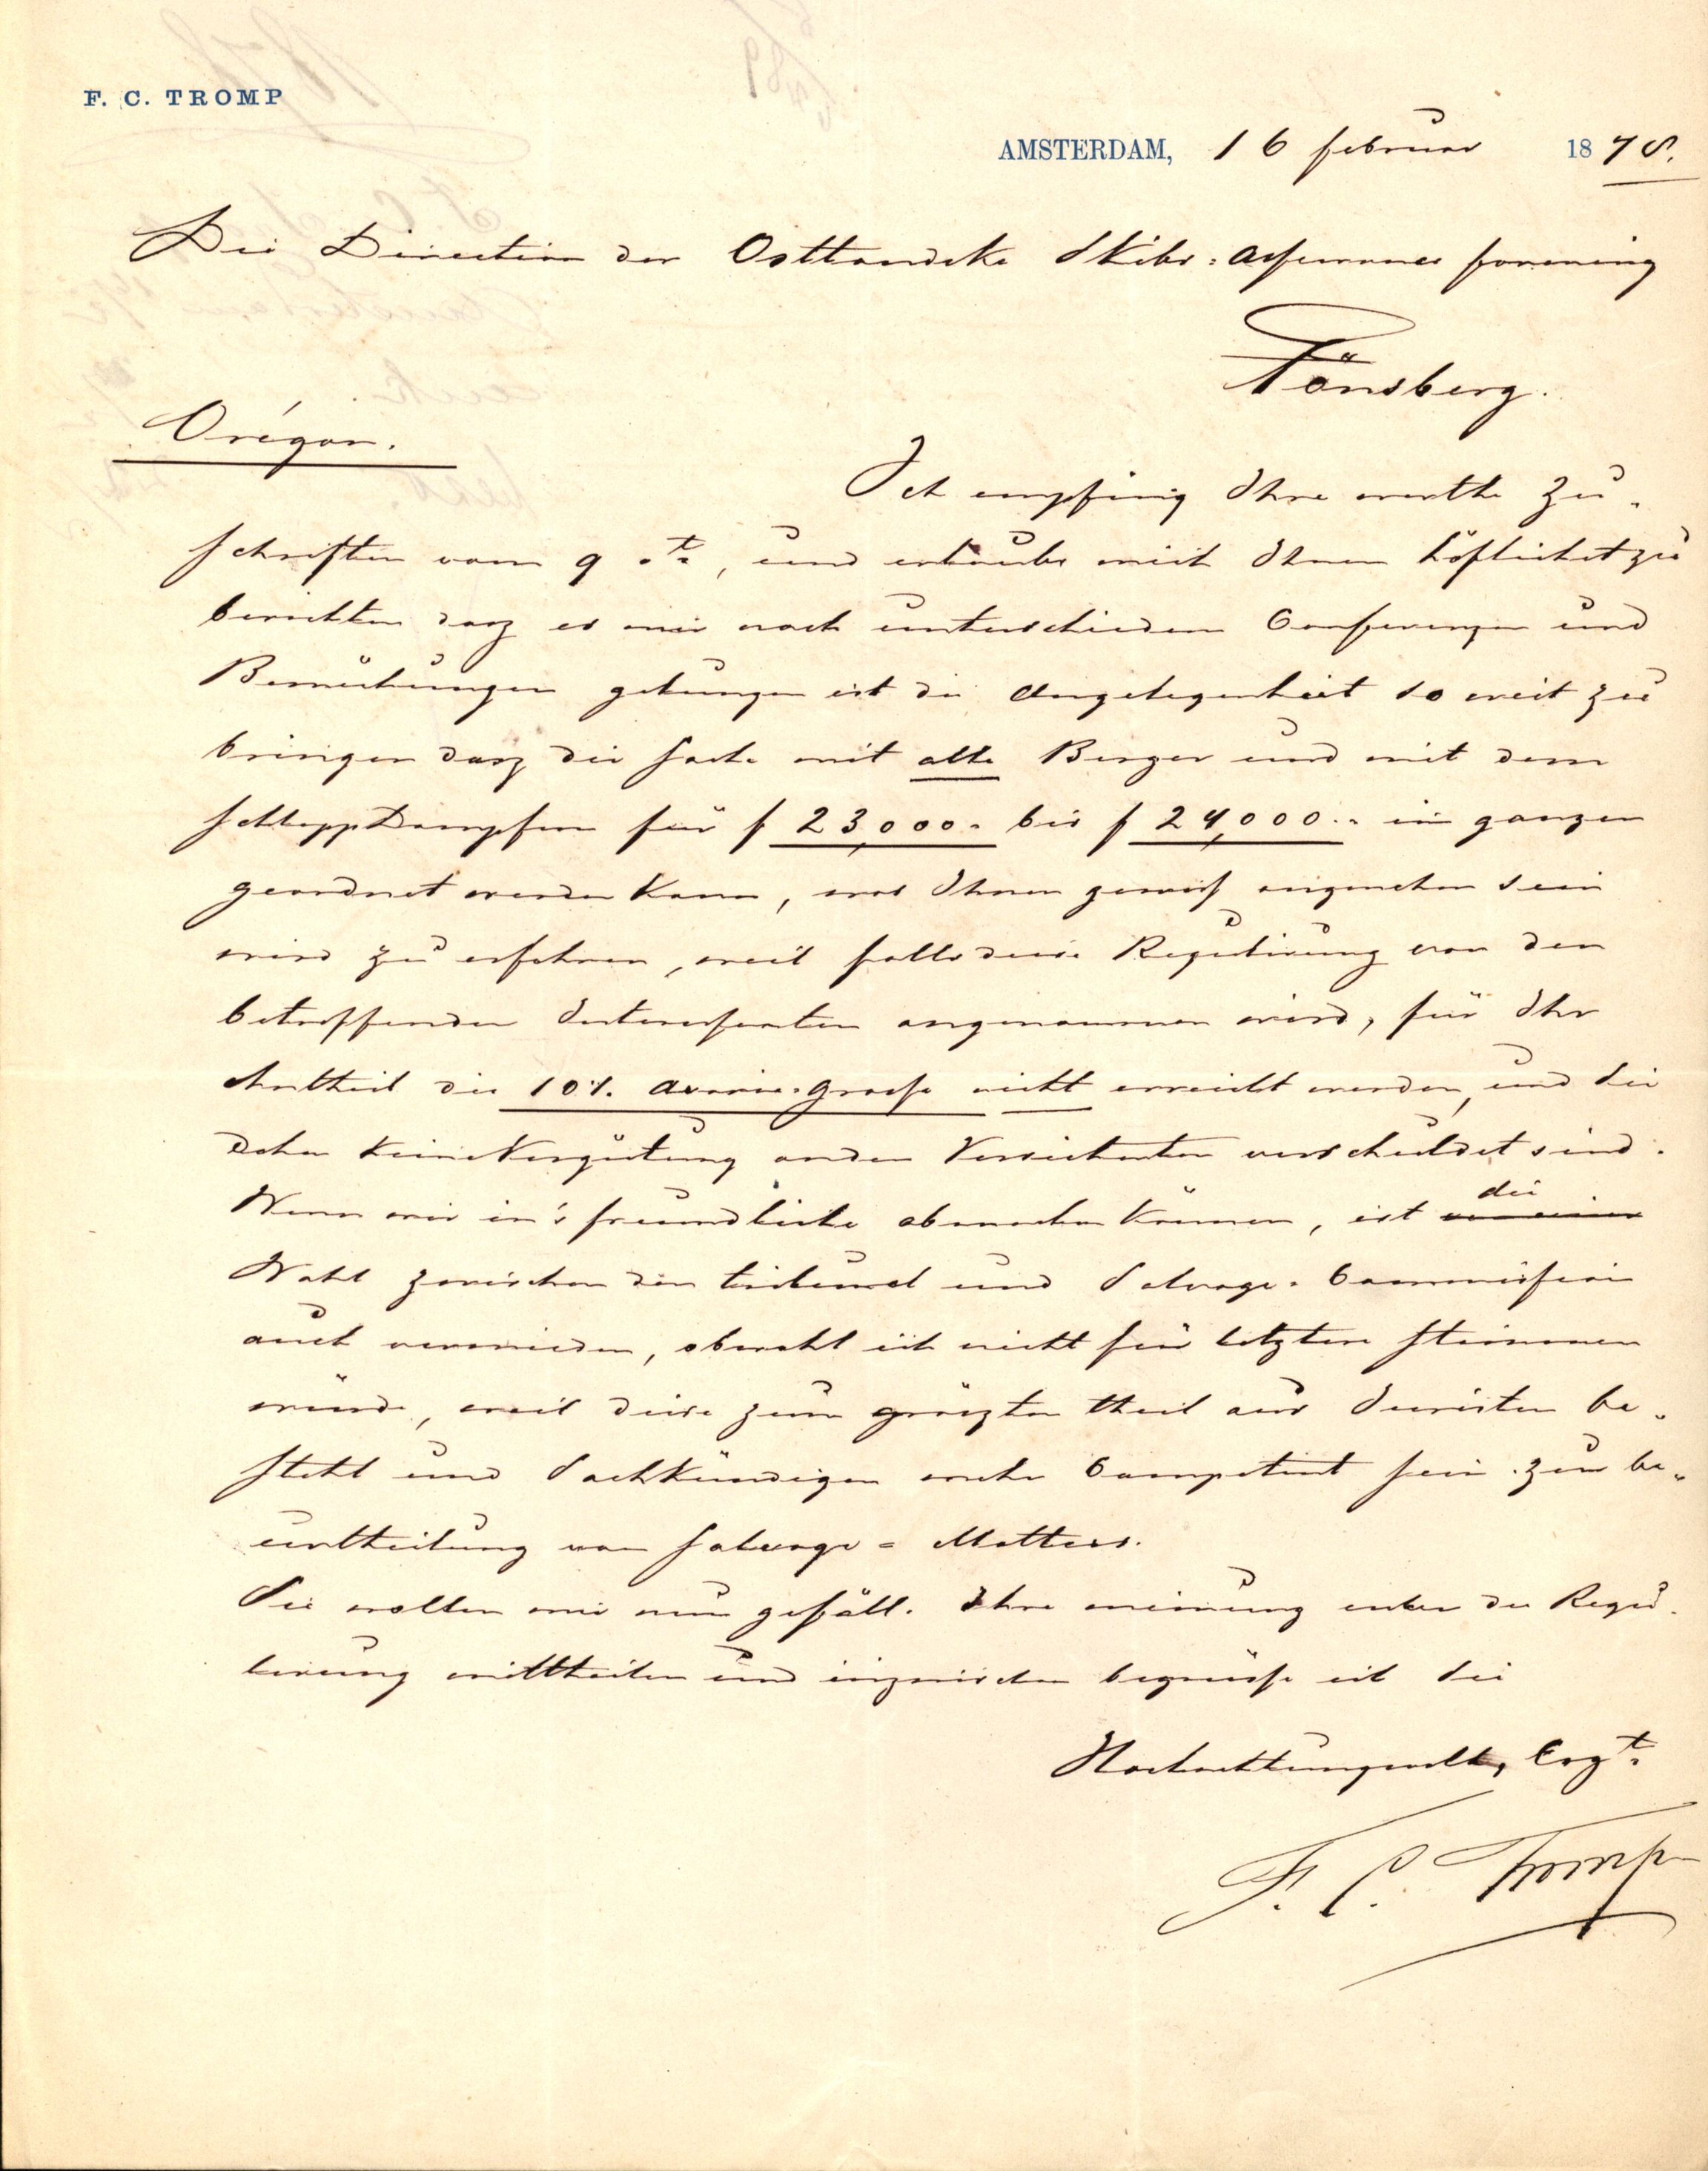 F. C. TROMP
AMSTERDAM, 16 februar 1878.
Die Direction der Ostlandske Skibs-Assurance forening
Tönsberg.
Orégon.
Ich empfing Ihre werthe Zu-
schriften vom 9 ct, und erlaube mich Ihnen höflichst zu
berichten dasz es mir nach unterschieden Conferenzen und
Bemühungen gelungen ist die Angelegenheit so weit zu
bringen dasz die Sache mit alle Berger und mit dem
Schleppdampfern für f 23,000.- bis f 24,000.- im ganzen
geordnet werden kann, was Ihnen gewiss angenehm sein
wird zu erfahren, weil falls diese Regulirung von den
betreffenden Interessenten angenommen wird, für Ihr
Antheil die 10%. Avarie-Grosse nicht erreicht werden, und Sie
daher keine Vergütung an den Versicherten verschuldet sind.
Wenn wir in's freundliche abmachen können, ist die
Wahl zwischen den tribunal und Salvage-Commission
auch vermieden, obwohl ich nicht für letztere stimmen
würde, weil diese zum gröszten theil aus Juristen be-
steht und Sachkündigen mehr Competent sein zur be-
urtheilung von Salvage-Matters.
Sie wollen mir nun gefäll. Ihre meinung über die Regu-
lirung mittheilen und inzwischen begrüsse ich Sie
Hochachtungsvoll, Ergt.
F. C. Tromp